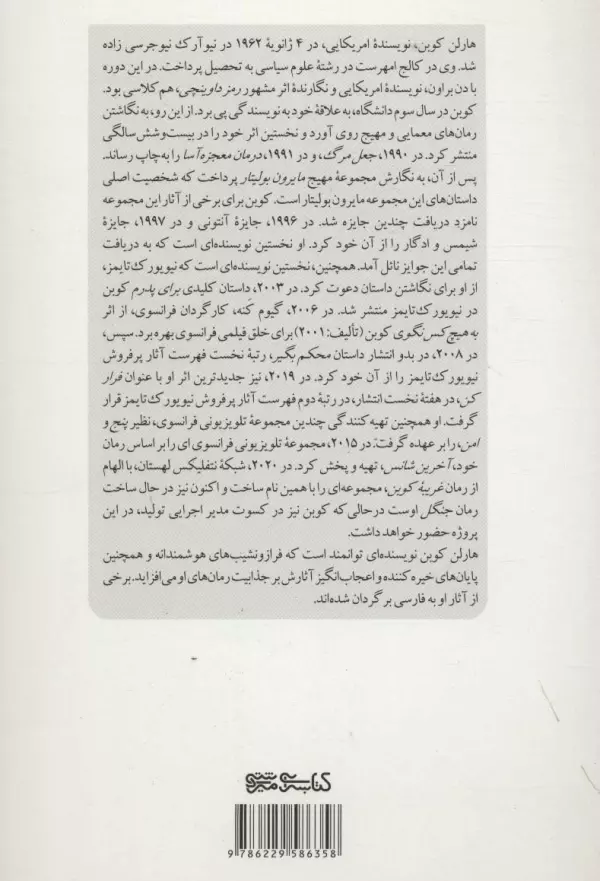 هارلن کوبن، نویسندهٔ امریکایی، در ۴ ژانویهٔ ۱۹۶۲ در نیوآرک نیوجرسی زاده
شد. وی در کالج امهرست در رشتهٔ علوم سیاسی به تحصیل پرداخت. در این دوره
با دن براون، نویسندهٔ امریکایی و نگارندهٔ اثر مشهور رمز داوینچی، هم کلاسی بود.
کوبن در سال سوم دانشگاه، به علاقهٔ خود به نویسندگی پی برد. از این رو، به نگاشتن
رمان‌های معمایی و مهیج روی آورد و نخستین اثر خود را در بیست‌وشش سالگی
منتشر کرد. در ۱۹۹۰، جعل مرگ، و در ۱۹۹۱، درمان معجزه‌آسا را به چاپ رساند.
پس از آن، به نگارش مجموعهٔ مهیج مایرون بولیتار پرداخت که شخصیت اصلی
داستان‌های این مجموعه مایرون بولیتار است. کوبن برای برخی از آثار این مجموعه
نامزد دریافت چندین جایزه شد. در ۱۹۹۶، جایزهٔ آنتونی و در ۱۹۹۷، جایزهٔ
شیمس و ادگار را از آن خود کرد. او نخستین نویسنده‌ای است که به دریافت
تمامی این جوایز نائل آمد. همچنین، نخستین نویسنده‌ای است که نیویورک تایمز،
از او برای نگاشتن داستان دعوت کرد. در ۲۰۰۳، داستان کلیدی برای پدرم کوبن
در نیویورک تایمز منتشر شد. در ۲۰۰۶، گیوم کَنه، کارگردان فرانسوی، از اثر
به هیچ کس نگوی کوبن (تألیف: ۲۰۰۱) برای خلق فیلمی فرانسوی بهره برد. سپس،
در ۲۰۰۸، در بدو انتشار داستان محکم بگیر، رتبهٔ نخست فهرست آثار پرفروش
نیویورک تایمز را از آن خود کرد. در ۲۰۱۹، نیز جدیدترین اثر او با عنوان فرار
کن، در هفتهٔ نخست انتشار، در رتبهٔ دوم فهرست آثار پرفروش نیویورک تایمز قرار
گرفت. او همچنین تهیه کنندگی چندین مجموعهٔ تلویزیونی فرانسوی، نظیر پنج و
امن، را بر عهده گرفت. در ۲۰۱۵، مجموعهٔ تلویزیونی فرانسوی ای را بر اساس رمان
خود، آخرین شانس، تهیه و پخش کرد. در ۲۰۲۰، شبکهٔ نتفلیکس لهستان، با الهام
از رمان غریبهٔ کوبن، مجموعه‌ای را با همین نام ساخت و اکنون نیز در حال ساخت
رمان جنگل اوست درحالی که کوبن نیز در کسوت مدیر اجرایی تولید، در این
پروژه حضور خواهد داشت.
هارلن کوبن نویسنده‌ای توانمند است که فرازونشیب‌های هوشمندانه و همچنین
پایان‌های خیره کننده و اعجاب‌انگیز آثارش بر جذابیت رمان‌های او می‌افزاید. برخی
از آثار او به فارسی برگردان شده‌اند.
کتابسرای میردشتی
9 786229 586358